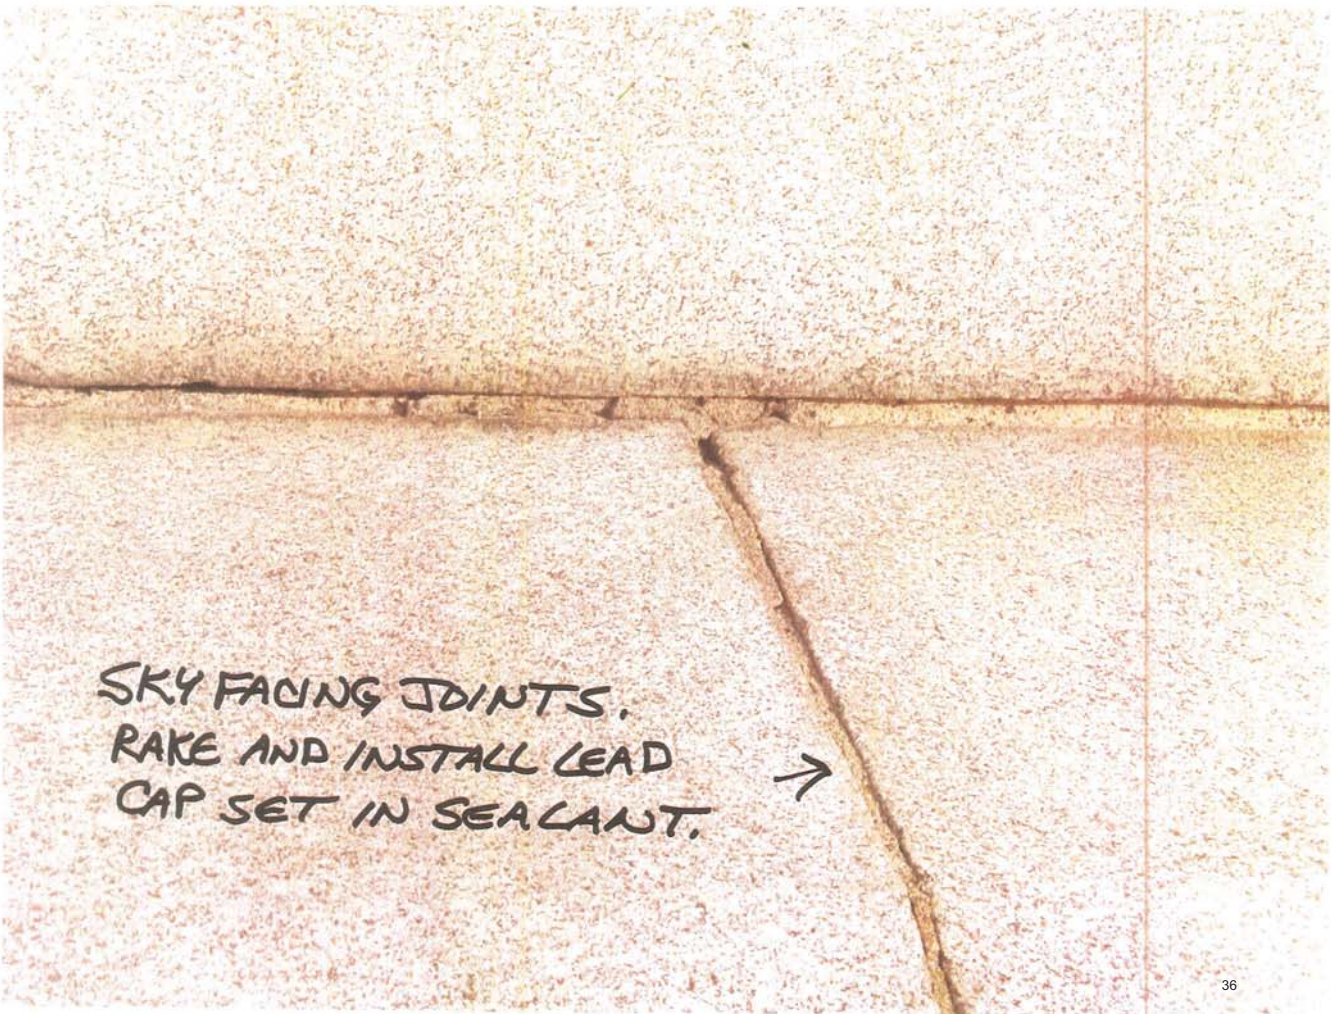 SKY FACING JOINTS.
RAKE AND INSTALL LEAD
CAP SET IN SEALANT.
36